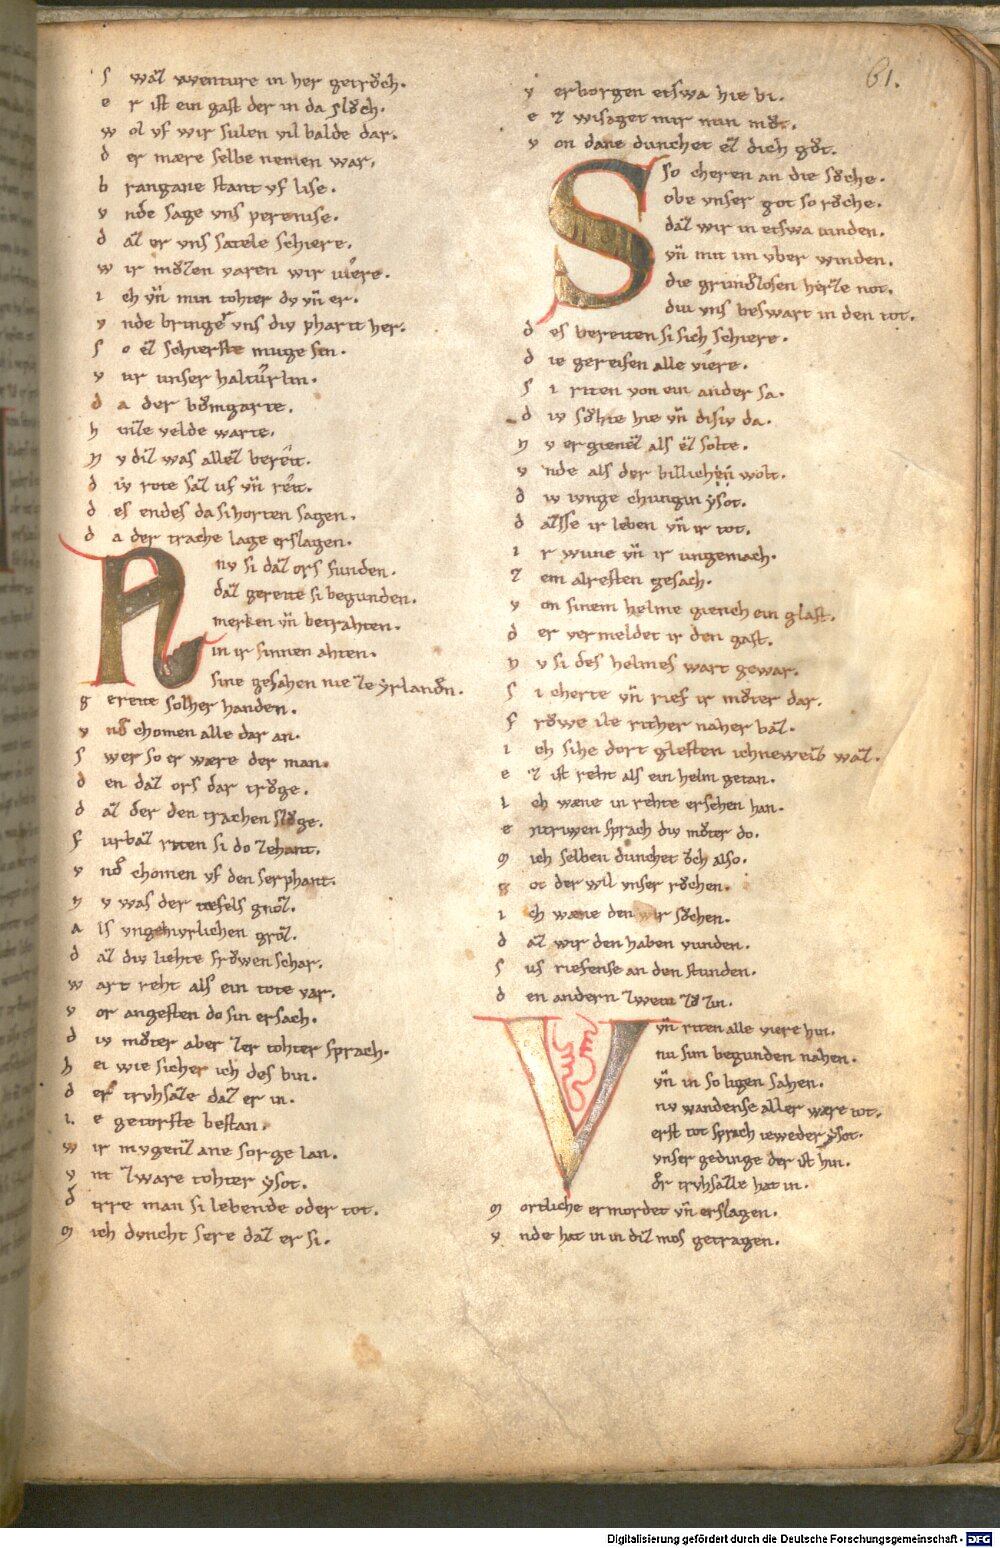 61.
s waꝫ aventure in her getrŏch.
e r ist ein gast der in da slŏch.
w ol uf wir sulen vil balde dar.
d er mære selbe nemen war.
b rangane stant uf lise.
v nde sage vns perenise.
d aꝫ er vns satele schiere.
w ir mŏꝫen varen wir viere.
i ch vn̄ min tohter dv vn̄ er.
v nde bringe vns div pharit her.
s o eꝫ schierste muge sin.
v ur unser halturlin.
d a der bŏmgarte.
h inꝫe velde warte.
n v diꝫ was alleꝫ bereit.
d iv rote saꝫ uf vn̄ reit.
d es endes da si horten sagen.
d a der trache lage erslagen.
A nv si daꝫ ors funden.
daꝫ gereite si begunden.
merken vn̄ betrahten.
in ir sinnen ahten.
sine gesahen nie ꝫe yrlandn.
g ereite solher handen.
v nd chomen alle dar an.
s wer so er wære der man.
d en daꝫ ors dar trŏge.
d aꝫ der den trachen slŏge.
f urbaꝫ riten si do ꝫehant.
v nd chomen vf den serphant.
n v was der tiefels gnoꝫ.
a ls vngehivrlichen groꝫ.
d aꝫ div liehte frŏwen schar.
w art reht als ein tote var.
v or angesten do sin ersach.
d iv mŏter aber ꝫer tohter sprach.
h ei wie sicher ich des bin.
d er truhsæꝫe daꝫ er in.
i e getorste bestan.
w ir mvgenꝫ ane sorge lan.
v nt ꝫware tohter ysot.
d irre man si lebende oder tot.
m ich dvncht sere daꝫ er si.
v erborgen etswa hie bi.
e ꝫ wisaget mir min mŏt.
v on dane dunchet eꝫ dich gŏt.
S so cheren an die sŏche.
obe vnser got so rŏche.
daꝫ wir in etswa vinden.
vn̄ mit im vber winden.
die grundlosen herꝫe not.
div vns beswart in den tot.
d es bereiten si sich schiere.
d ie gereisen alle viere.
s i riten von ein ander sa.
d iv sŏhte hie vn̄ disiv da.
n v ergieneꝫ als eꝫ solte.
v nde als der billichen wolt.
d iv ivnge chungin ysot.
d aꝫsse ir leben vn̄ ir tot.
i r wune vn̄ ir ungemach.
ꝫ em alresten gesach.
v on sinem helme giench ein glast.
d er vermeldet ir den gast.
n v si des helmes wart gewar.
s i cherte vn̄ rief ir mŏter dar.
f rŏwe ile rither naher baꝫ.
i ch sihe dort glesten ichneweiꝫ waꝫ.
e ꝫ ist reht als ein helm getan.
i ch wæne in rehte ersehen han.
e ntriwen sprach div mŏter do.
m ich selben dunchet ŏch also.
g ot der wil vnser rŏchen.
i ch wæne den wir sŏchen.
d aꝫ wir den haben vunden.
s us riefense an den stunden.
d en andern ꝫwein ꝫŏ ꝫin.
V vn̄ riten alle viere hin.
nu sim begunden nahen.
vn̄ in so ligen sahen.
nv wandense aller wære tot.
erst tot sprach ieweder ysot.
vnser gedinge der ist hin.
dr truhsæꝫe hat in.
m ortliche ermordet vn̄ erslagen.
v nde hat in in diꝫ mos getragen.
Digitalisierung gefördert durch die Deutsche Forschungsgemeinschaft - DFG